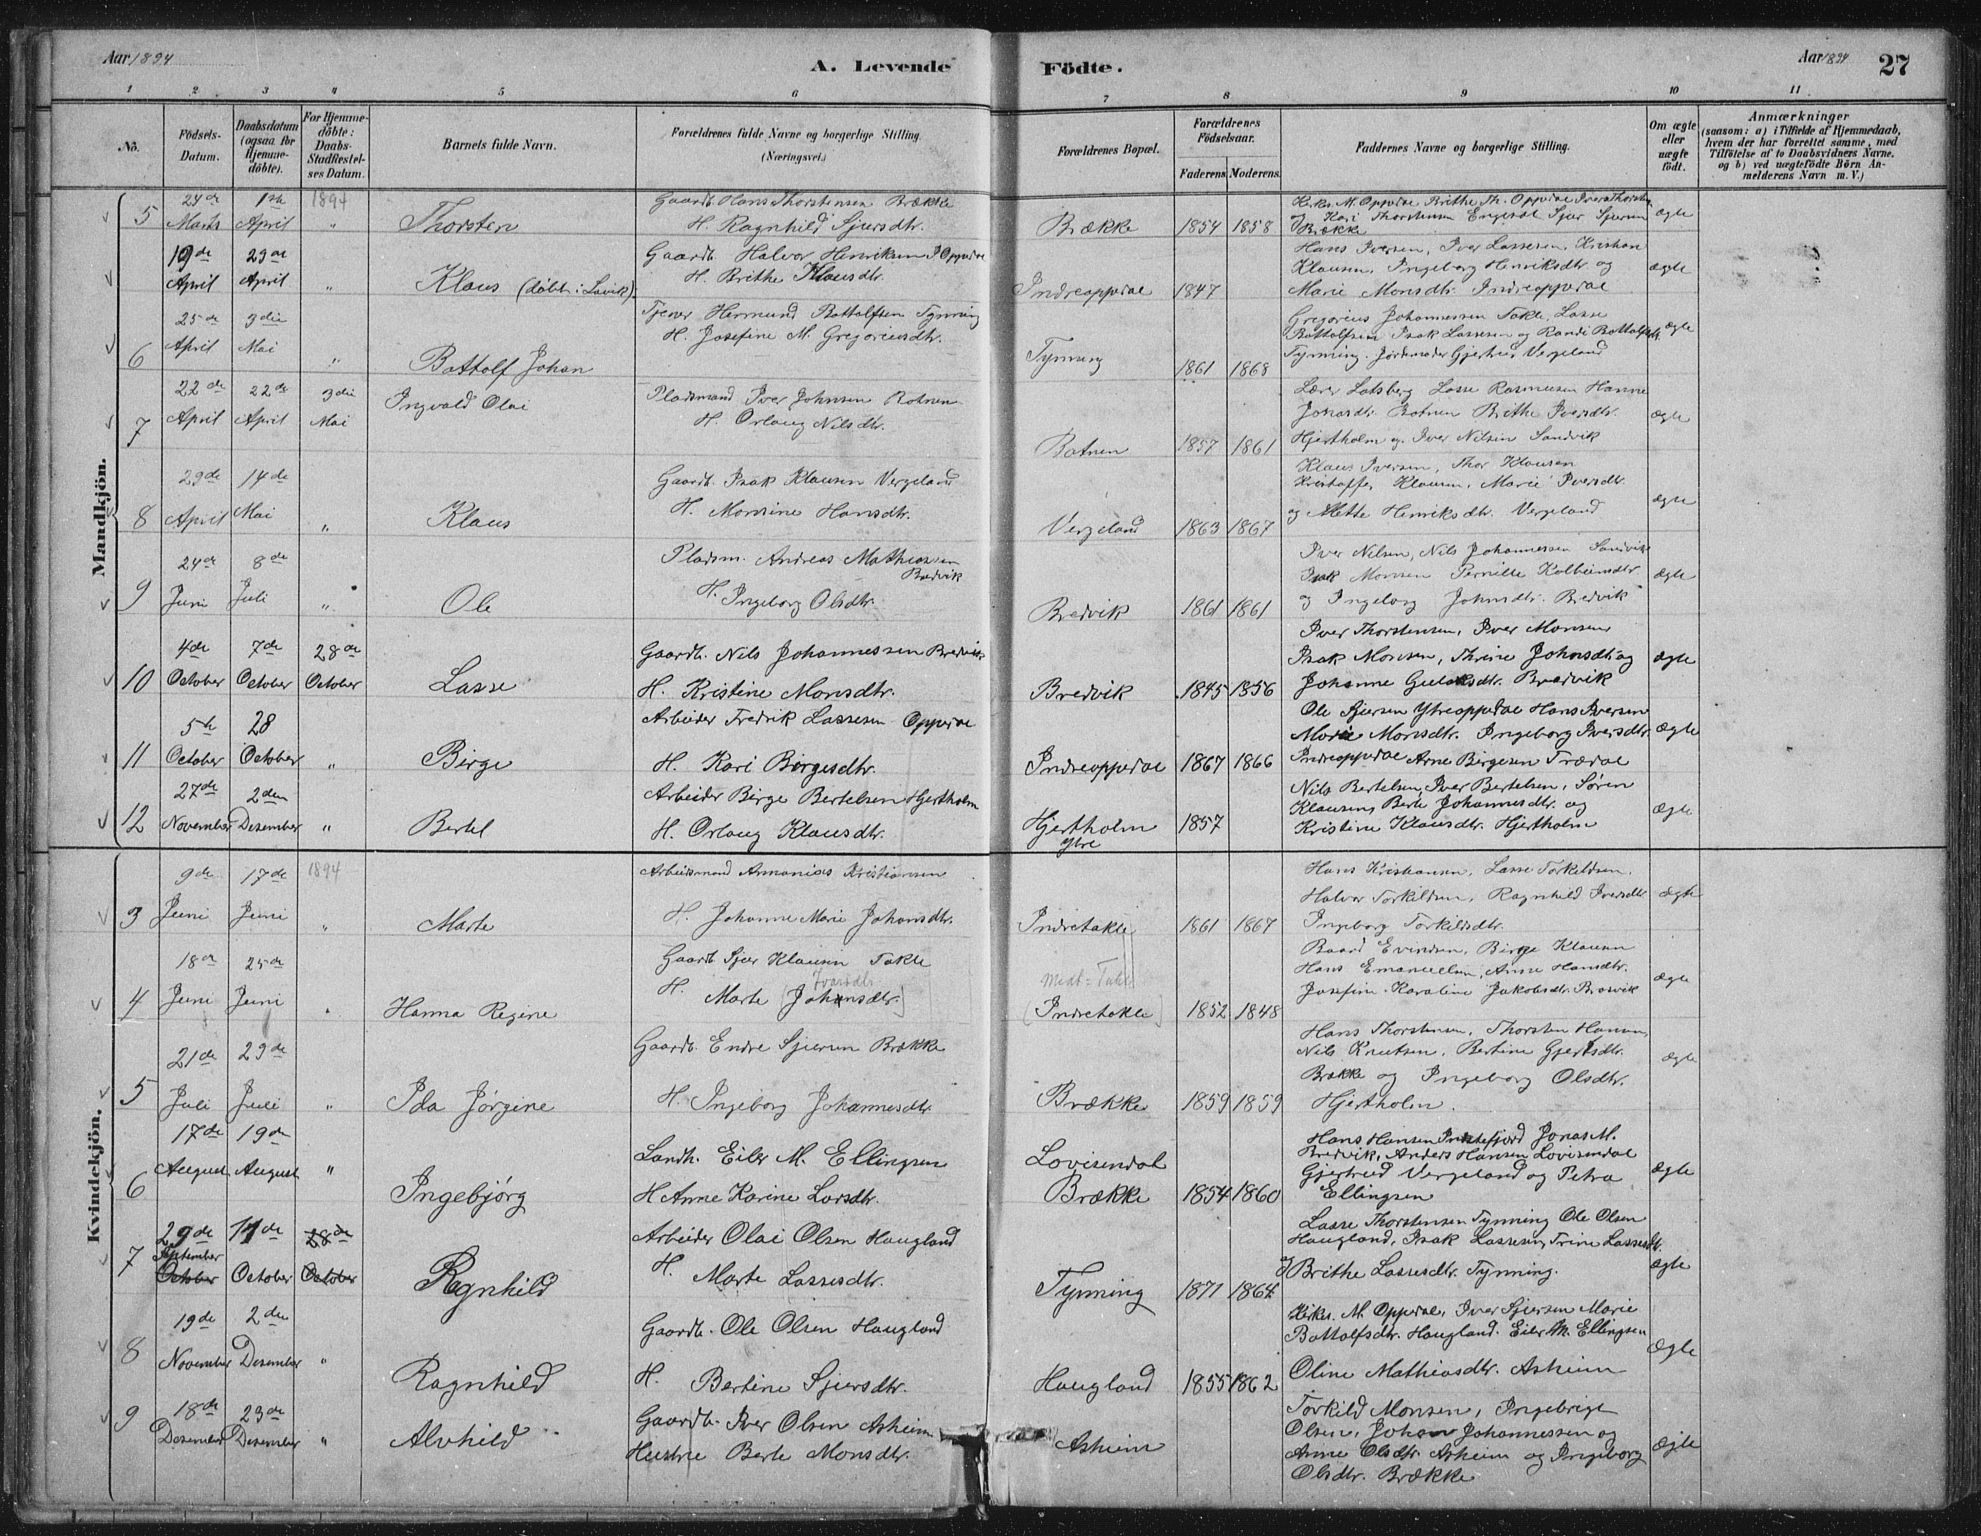 Aar 1894
A. Levende Födte.
Aar 1894 27
1 2 3 4 5 6 7 8 9 10 11
No.
Födsets-Datum.
Daabsdatum (ogsaa for Hjemme-döbte).
For Hjemme-döbte: Daabs-Stadfæstel-ses Datum.
Barnets fulde Navn.
Forældrenes fulde Navne og borgerlige Stilling. (Næringsvei.)
Forældrenes Bopæl.
Forældrenes Födselsaar.
Faderens Moderens
Faddernes Navne og borgerlige Stilling.
Om ægte eller uægte födt.
Anmærkninger
(saasom: a) i Tilfælde af Hjemmedaab,
hvem der har forrettet samme, med
Tilföielse af to Daabsvidners Navne,
og b) ved uægtefödte Börn An-
melderens Navn m. V.)
Mandkjön.
5 24de Marts 1ste April 1894 "
Thorsten
Gaardb. Hans Thorstensen Brække
H. Ragnhild Sjursdtr.
Brække 1854 1858
Kirkes. M. Oppedae Brithe Th. Oppedae Iver Thorsten
og Kari Thorstensen Engesæt Sjur Sjursen
Brække
ægte
19de April 29de April "
Klaus (døbt i Lavik).
Gaardb. Halvor Henriksen I Oppedae
H. Brithe Klausdtr.
Indreoppedae 1847
Hans Iversen, Iver Lassesen, Kristian
Klausen, Ingeborg Henriksdtr og
Marie Monsdtr. Indreoppedae
ægte
6 25de April 3die Mai "
Bottolf Johan
Tjener Hermund Bottolfsen Tynning
H. Josefine M. Gregoriusdtr.
Tynning 1861 1868
Gregorius Johannessen Takle, Lasse
Bottolfsen Isak Lassesen og Randi Bottolfsdtr.
Tynning. Jordemoder Gjertrud Vergeland
ægte
7 22de April 22de April 3die Mai
Ingvald Olai
Pladsmand Iver Johnsen Botnen
H. Orlaug Nilsdtr.
Botnen 1857 1861
Lærer Lotsberg Lasse Rasmusen Hanne
Johnsdtr. Botnen Brithe Iversdtr.
Hjertholm og Iver Nilsen Sandvik
ægte
8 29de April 14de Mai "
Klaus
Gaardb. Isak Klausen Vergeland
H. Monsine Hansdtr.
Vergeland 1863 1867
Klaus Iversen, Thor Klausen
Kristoffer Klausen, Marie Iversdtr.
og Mette Henriksdtr. Vergeland
ægte
9 24de Juni 8de Juli "
Ole
Pladsm. Andreas Mathiassen Bredvik
H. Ingeborg Olsdtr.
Bredvik 1861 1861
Iver Nilsen, Nils Johannessen Sandvik
Isak Monsen Pernille Kolbeinsdtr
og Ingeborg Johnsdtr. Bredvik
ægte
10 4de October 7de October 28de October
Lasse
Gaardb. Nils Johannessen Bredvik
H. Kristine Monsdtr.
Bredvik 1845 1856
Iver Thorstensen, Iver Monsen
Isak Monsen, Thrine Johnsdtr og
Johanne Gulaksdtr. Bredvik
ægte
11 5te October 28 October "
Birge
Arbeider Fredrik Lassesen Oppedae
H. Kari Birgesdtr.
Indreoppedae 1867 1866
Ole Sjursen Ytreoppedae Hans Iversen
Marie Monsdtr. Ingeborg Iversdtr.
Indreoppedae Arne Birgesen Trædae
ægte
12 27de November 2den Desember "
Bertel
Arbeider Birge Bertelsen Hjertholm
H. Orlaug Klausdtr.
Hjertholm ytre 1857
Nils Bertelsen, Iver Bertelsen, Søren
Klausen, Berte Johannesdtr. og
Kristine Klausdtr. Hjertholm
ægte
Kvindekjön.
3 9de Juni 17de Juni 1894 "
Marte
Arbeidsmand Kristiansen
H. Johanne Marie Johansdtr.
Indretakle 1861 1867
Hans Kristiansen, Lasse Torkildsen,
Halvor Torkildsen, Ragnhild Iversdtr.
Ingeborg Torkildsdtr.
ægte
4 18de Juni 25de Juni
Hanna Regine
Gaardb Sjur Klausen Takle
H. Marte [Johnsdtr.] Ivarsdtr
Midt-Takle
[Indretakle] 1852 1848
Baard Evindsen, Birge Klausen
Hans Emanuelsen, Anne Hansdtr.
Josefine Karoline Jakobsdtr. Brosvik
ægte
5 21de Juli 29de Juli "
Ida Jørgine
Gaardb. Endre Sjursen Brække
H. Ingeborg Johannesdtr.
Brække 1859 1859
Hans Thorstensen, Thorsten Hansen,
Nils Knutsen, Bertine Gjertsdtr.
Brække og Ingeborg Olsdtr.
Hjertholm.
ægte
6 17de August 19de August "
Ingebjørg
Landh. Eiler M. Ellingsen
H Anne Karine Larsdtr.
Lovisendal
Brække 1854 1860
Hans Hansen Jonas M.
Bredvik, Anders Hansen Lovisendal
Gjertrud Vergeland og Petra
Ellingsen
ægte
7 29de September October 14de October 28de October
Ragnhild
Arbeider Olai Olsen Haugland
H. Marte Lassesdtr.
Tynning 1871 1864
Lasse Thorstensen Tynning Ole Olsen
Haugland, Isak Lassesen, Trine Lassesdtr.
og Brithe Lassesdtr. Tynning.
ægte
8 19de November 2den Desember "
Ragnhild
Gaardb. Ole Olsen Haugland
H. Bertine Sjursdtr.
Haugland 1855 1862
Kirkes. M. Oppedae, Iver Sjursen Marie
Bottolfsdtr. Haugland. Eiler M. Ellingsen
Oline Mathiasdtr. Asheim
ægte
9 18de Desember 23de Desember "
Alvhild
Gaardb. Iver Olsen Asheim
Hustrue Berte Monsdtr.
Asheim
Torkild Monsen, Ingebrigt
Olsen, Johan Johannessen og
Anne Olsdtr. Asheim og Ingeborg
Olsdtr. Brække
ægte